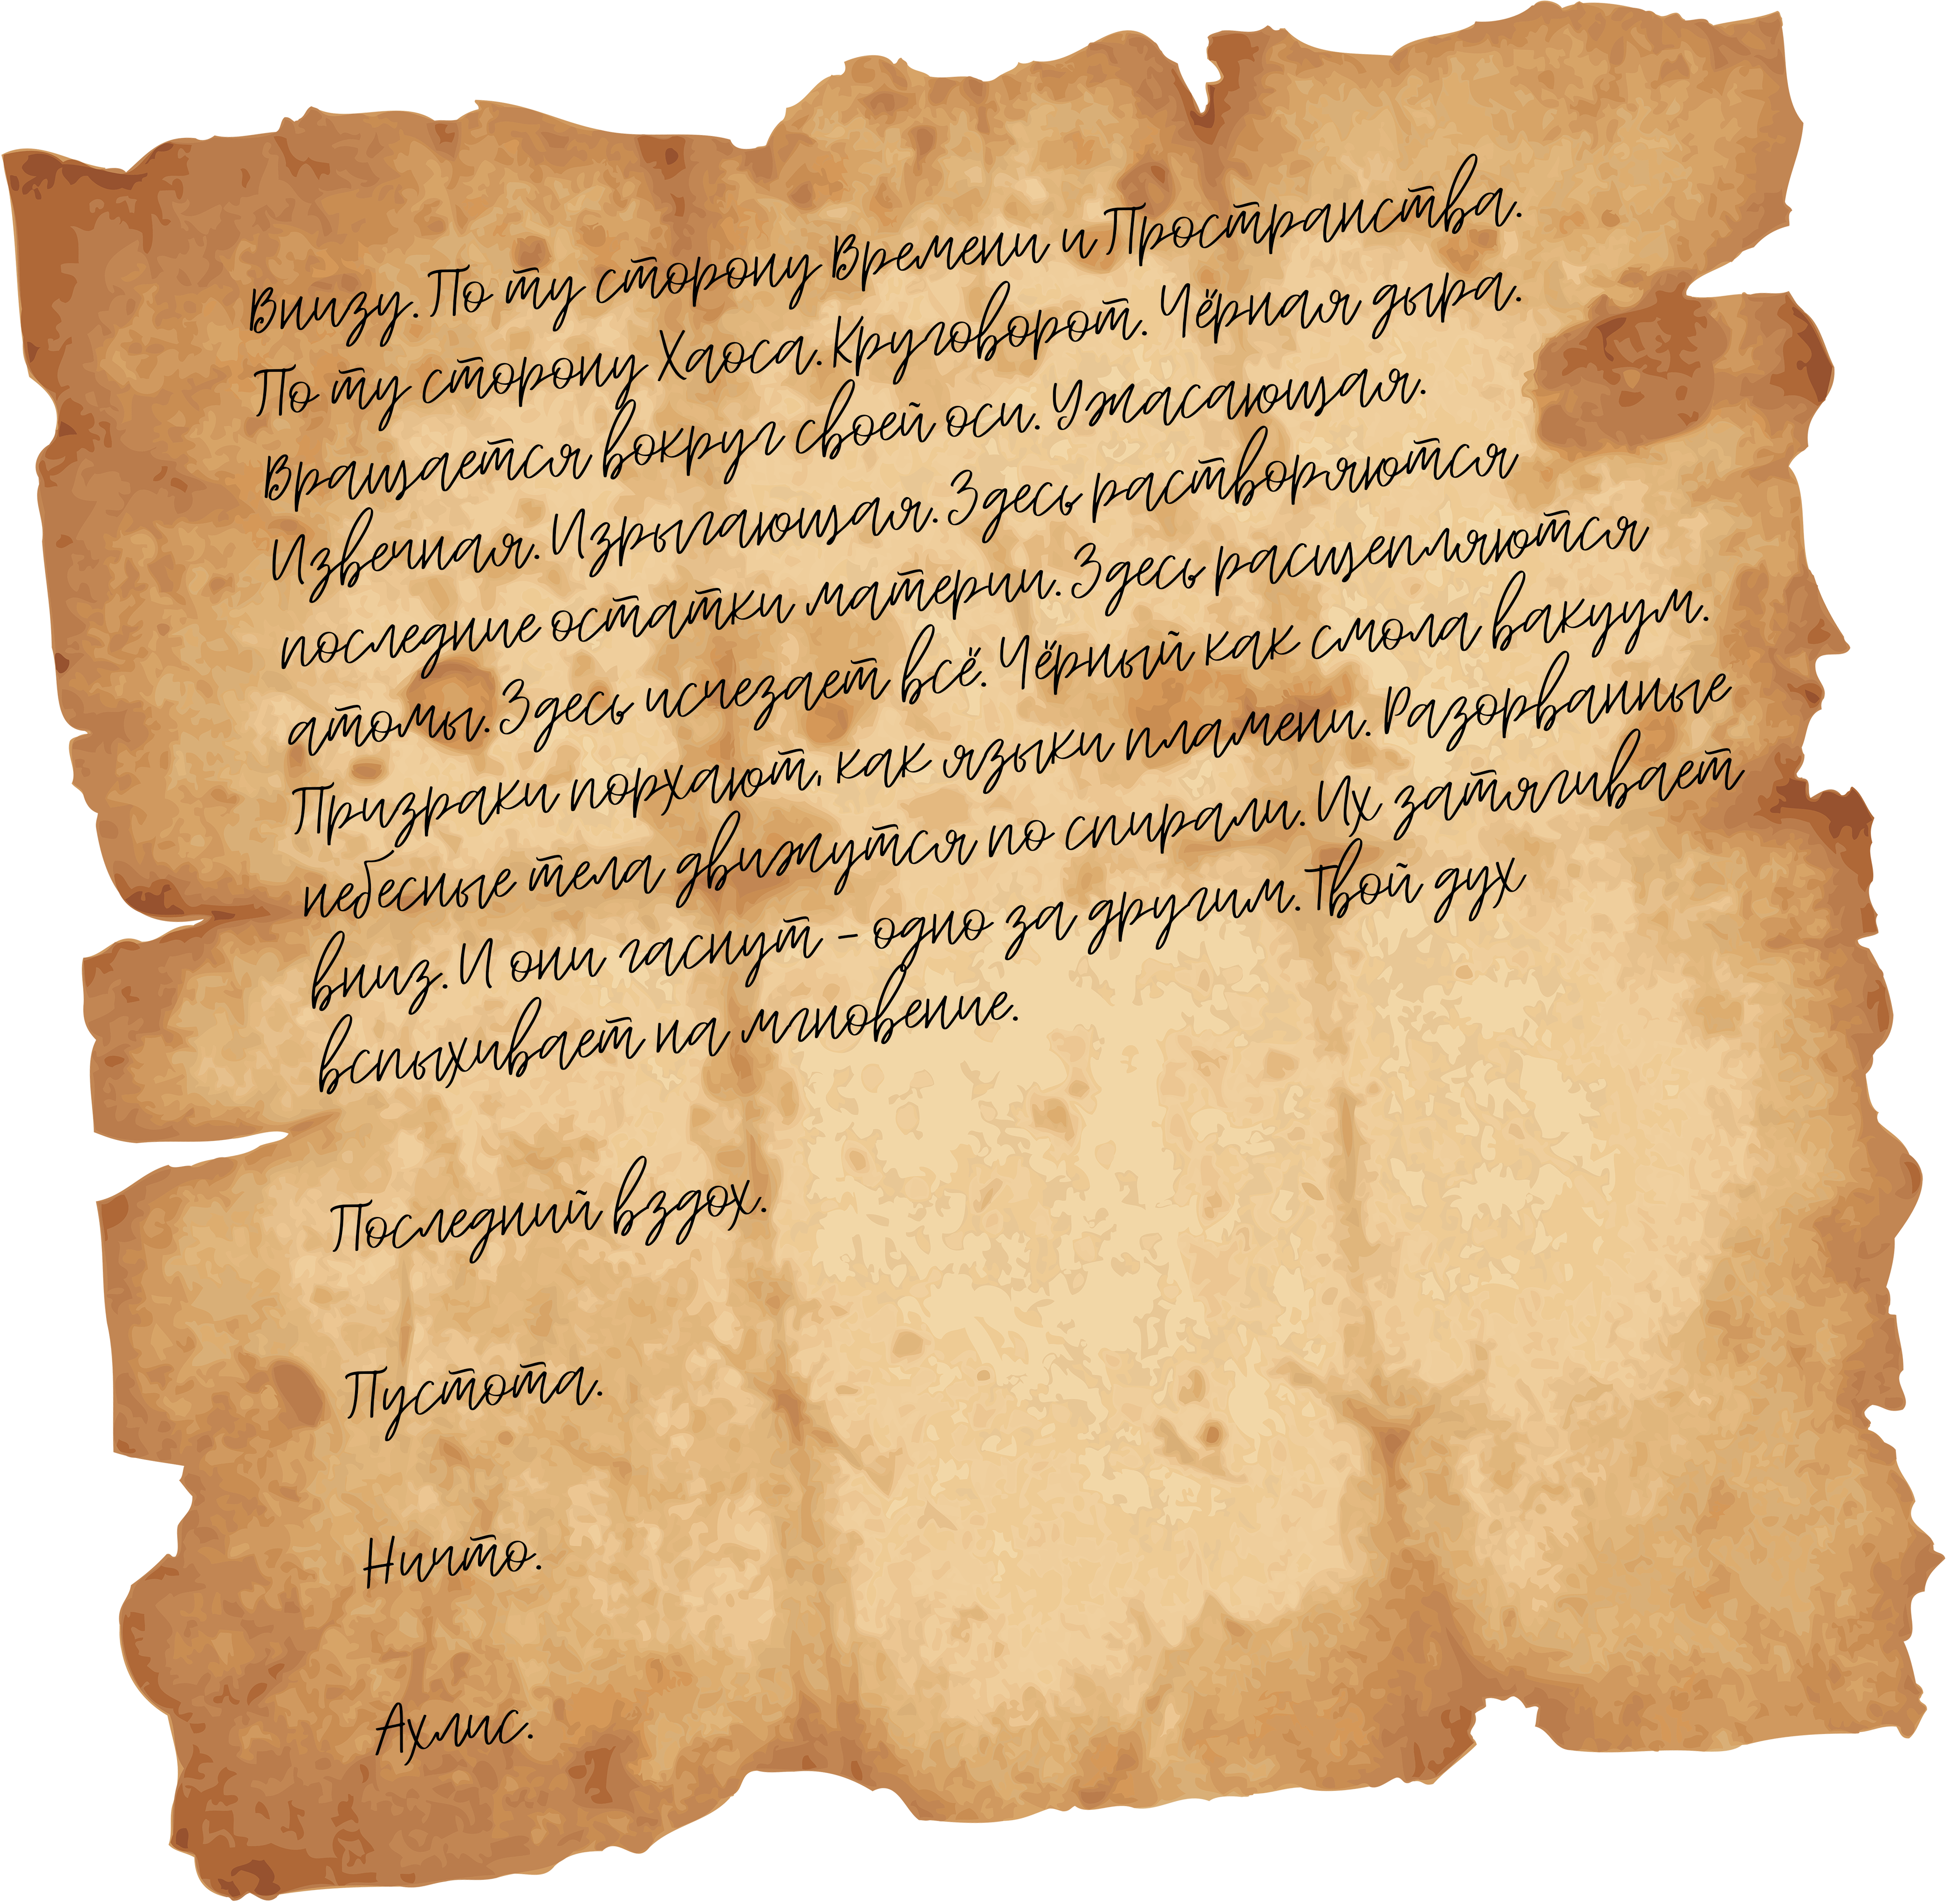 Внизу. По ту сторону Времени и Пространства.
По ту сторону Хаоса. Круговорот. Чёрная дыра.
Вращается вокруг своей оси. Ужасающая.
Извечная. Изрыгающая. Здесь растворяются
последние остатки материи. Здесь расщепляются
атомы. Здесь исчезает всё. Чёрный как смола вакуум.
Призраки порхают, как языки пламени. Разорванные
небесные тела движутся по спирали. Их затягивает
вниз. И они гаснут – одно за другим. Твой дух
вспыхивает на мгновение.
Последний вздох.
Пустота.
Ничто.
Ахлис.